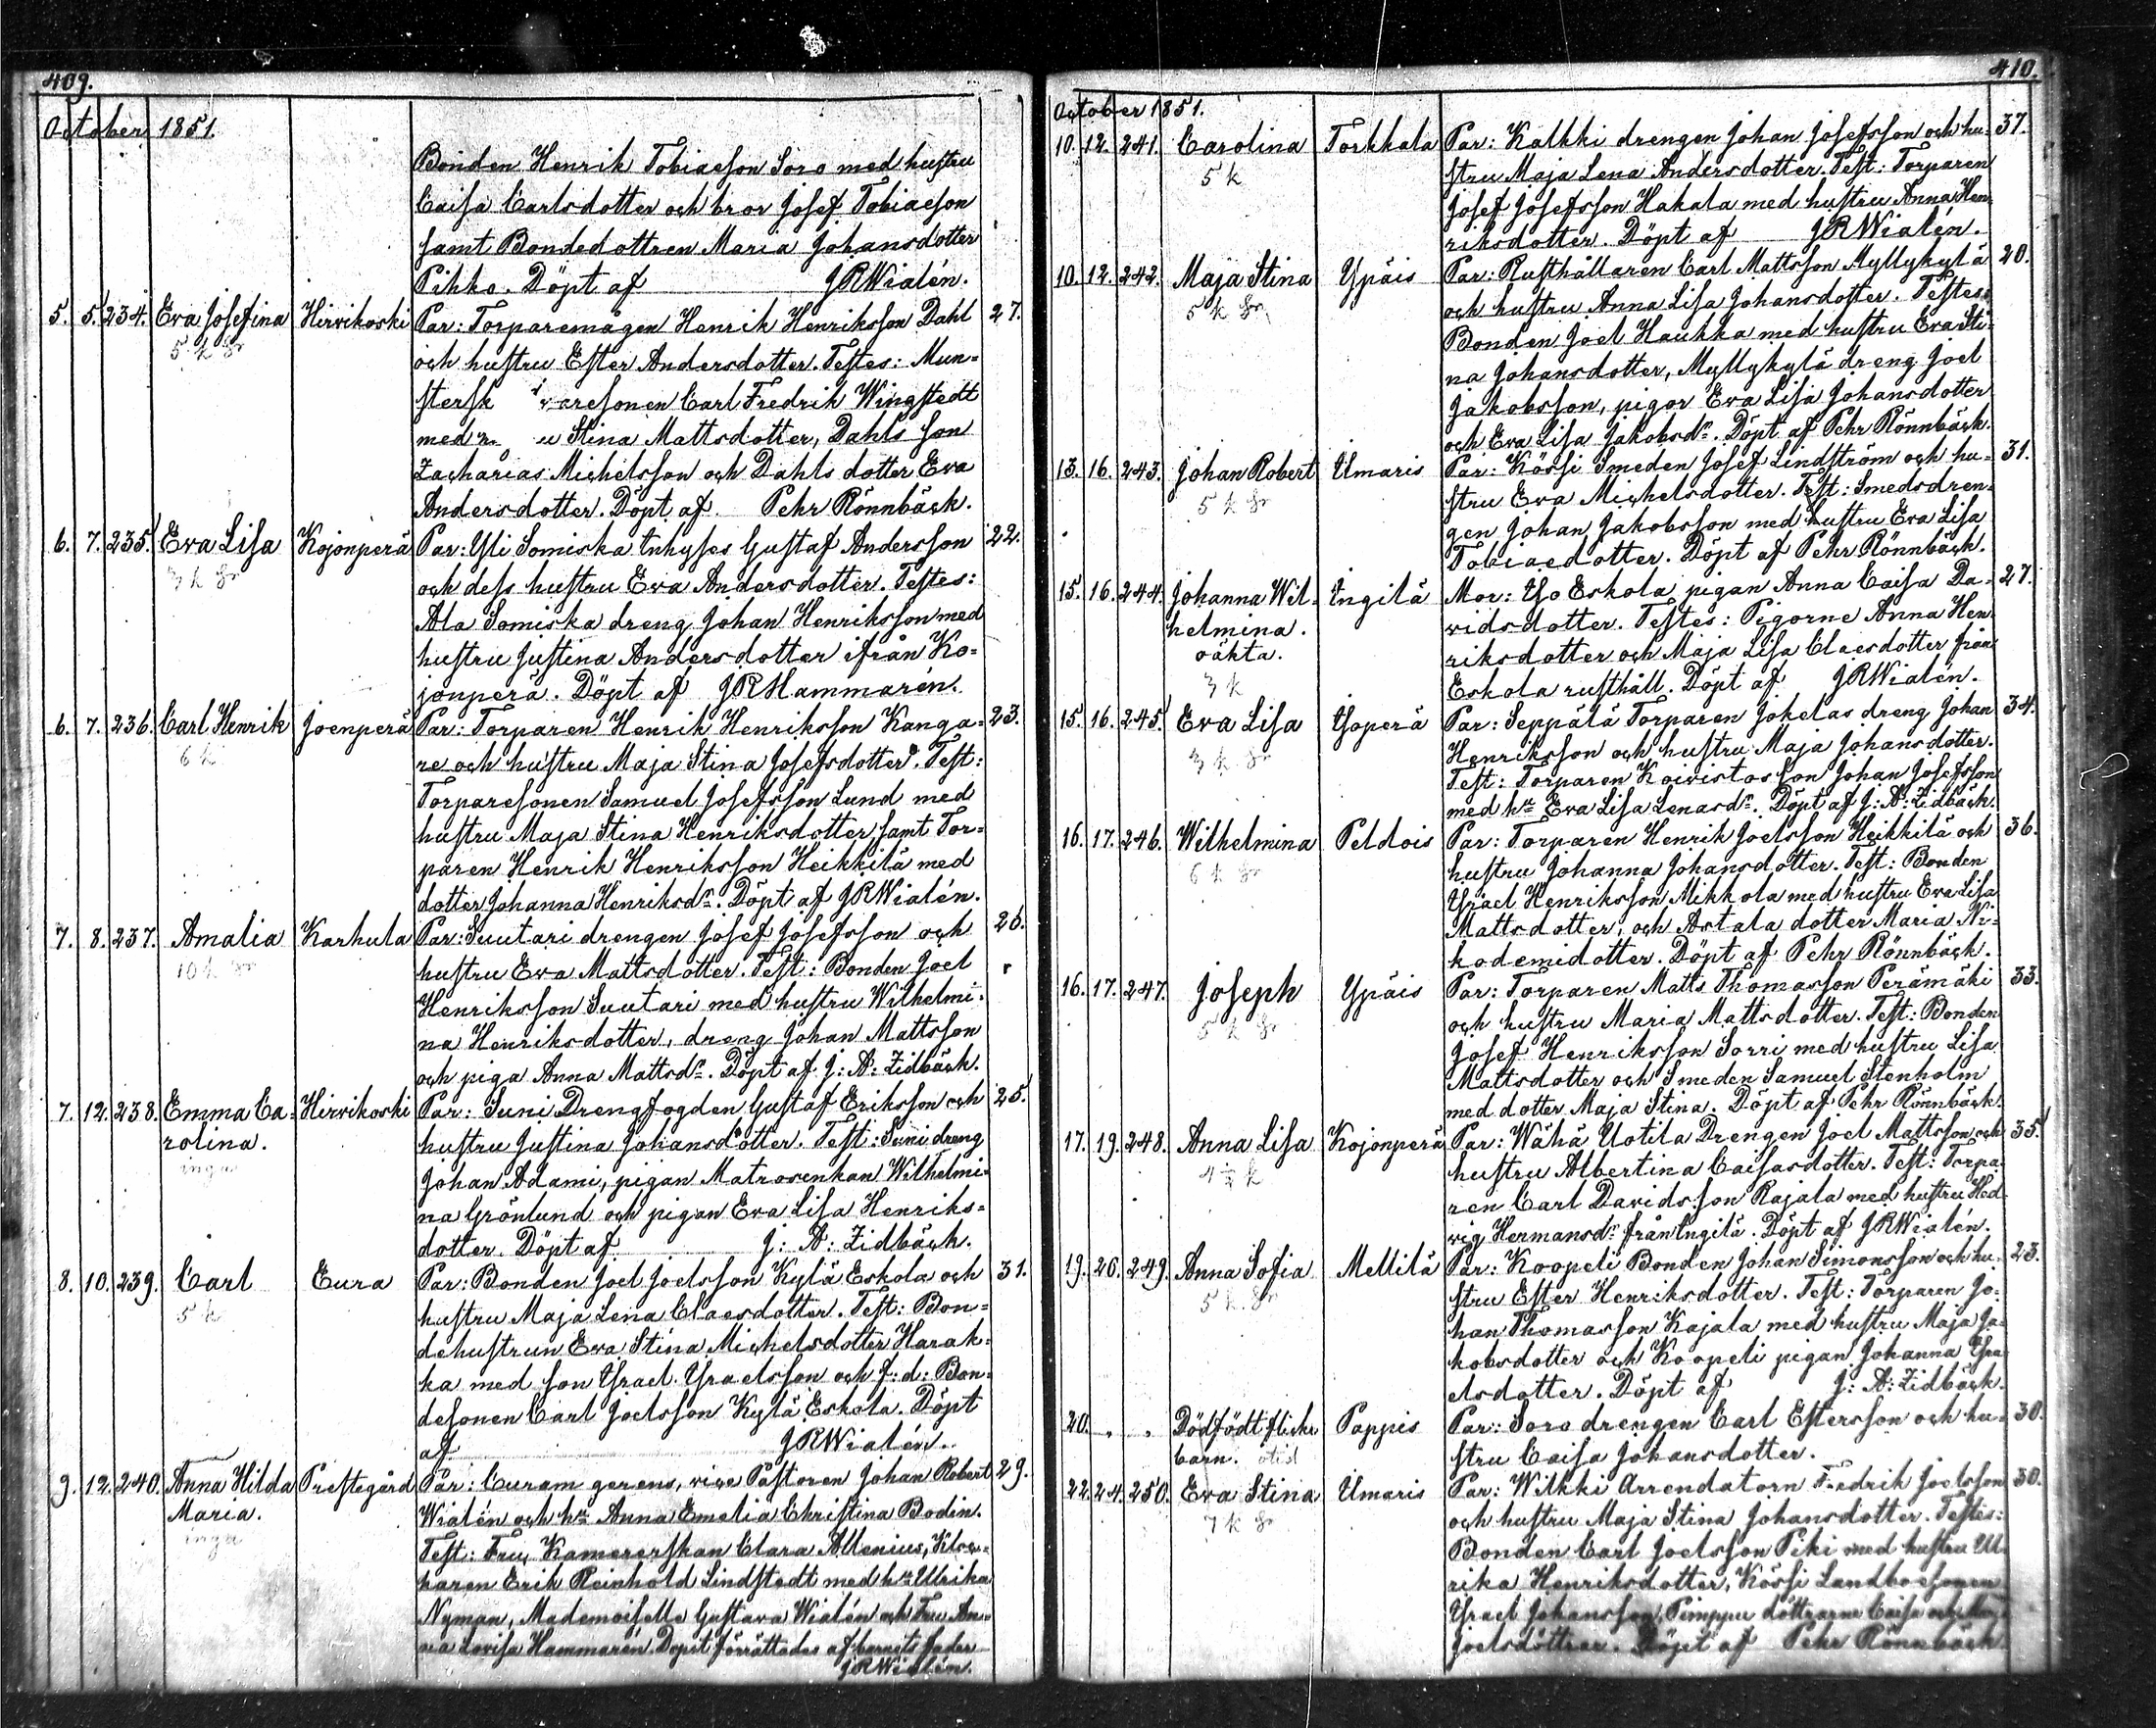 409.
October 1851.
Bonden Henrik Tobiaeson Soro med hustru
Caisa Carlsdotter och bror Josef Tobiaeson
samt Bondedottren Maria Johansdotter
Pihko. Döpt af JRWialén.
5. 5. 234. Eva Josefina Hirvikoski Par: Torparemågen Henrik Henriksson Dahl 27.
5 k Sr och hustru Ester Andersdotter. Testes: Mun-
stersk aresonen Carl Fredrik Wingstedt
med u Stina Mattsdotter, Dahls son
Zacharias Michelsson och Dahls dotter Eva
Andersdotter. Döpt af Pehr Rönnbäck.
6. 7. 235. Eva Lisa Kojonperä Par: Yli Somiska Inhyses Gustaf Andersson 22.
3 k Sr och dess hustru Eva Andersdotter. Testes:
Ala Somiska dreng Johan Henriksson med
hustru Justina Andersdotter ifrån Ko-
jonperä. Döpt af JRHammarén.
6. 7. 236. Carl Henrik Joenperä Par: Torparen Henrik Henriksson Kanga- 23.
6 k re och hustru Maja Stina Josefsdotter. Test:
Torparesonen Samuel Josefsson Lund med
hustru Maja Stina Henriksdotter, samt Tor-
paren Henrik Henriksson Heikkilä med
dotter Johanna Henriksdr. Döpt af JRWialén.
7. 8. 237. Amalia Karhula Par: Suutari drengen Josef Josefsson och 26.
10 k Sr hustru Eva Mattsdotter. Test: Bonden Joel
Henriksson Suutari med hustru Wilhelmi-
na Henriksdotter, dreng Johan Mattsson
och piga Anna Mattsdr. Döpt af J: A: Zidbäck.
7. 12. 238. Emma Ca- Hirvikoski Par: Suni Drengfogden Gustaf Eriksson och 25.
rolina. hustru Justina Johansdotter. Test: Suni dreng
inga Johan Adami, pigan Matrosenkan Wilhelmi-
na Grönlund och pigan Eva Lisa Henriks-
dotter. Döpt af J: A: Zidbäck.
8. 10. 239. Carl Eura Par: Bonden Joel Joelsson Kylä Eskola och 31.
5 k hustru Maja Lena Claesdotter. Test: Bon-
dehustrun Eva Stina Michelsdotter Harak-
ka med son Israel Israelsson och f: d: Bon-
desonen Carl Joelsson Kylä Eskola. Döpt
af JRWialén.
9. 12. 240. Anna Hilda Prestegård Par: Curam gerens, vice Pastoren Johan Robert 29.
Maria. Wialén och hu Anna Emelia Christina Bodin.
inga Test: Fru Kamererskan Clara Allenius, Kloc-
karen Erik Reinhold Lindstedt med hu Ulrika
Nyman, Mademoiselle Gustava Wialén och Fru An-
na Lovisa Hammarén. Dopet förrättades af barnets fader
JRWialén.
410.
October 1851.
10. 12. 241. Carolina Torkkala Par: Kalkki drengen Johan Josefsson och hu- 37.
5 k stru Maja Lena Andersdotter. Test: Torparen
Josef Josefsson Hakala med hustru Anna Hen-
riksdotter. Döpt af JRWialén.
10. 12. 242. Maja Stina Ypäis Par: Rusthållaren Carl Mattsson Myllykylä 20.
5 k Sr och hustru Anna Lisa Johansdotter. Testes:
Bonden Joel Haukka med hustru Eva Sti-
na Johansdotter, Myllykylä dreng Joel
Jakobsson, pigor Eva Lisa Johansdotter
och Eva Lisa Jakobsdr. Döpt af Pehr Rönnbäck.
13. 16. 243. Johan Robert Umaris Par: Kössi Smeden Josef Lindström och hu- 31.
5 k Sr stru Eva Michelsdotter. Test: Smedsdren-
gen Johan Jakobsson med hustru Eva Lisa
Tobiaedotter. Döpt af Pehr Rönnbäck.
15. 16. 244. Johanna Wil- Ingilä Mor: Iso Eskola pigan Anna Caisa Da- 27.
helmina. vidsdotter. Testes: Pigorne Anna Hen-
oäkta. riksdotter och Maja Lisa Claesdotter från
3 k Eskola rusthåll. Döpt af JRWialén.
15. 16. 245. Eva Lisa Isoperä Par: Seppälä Torparen Jokelas dreng Johan 34.
3 k Sr Henriksson och hustru Maja Johansdotter.
Test: Torparen Koivistos son Johan Josefsson
med hu Eva Lisa Lenardr. Döpt af J: A: Zidbäck.
16. 17. 246. Wilhelmina Peldois Par: Torparen Henrik Joelsson Heikkilä och 36.
6 k Sr hustru Johanna Johansdotter. Test: Bonden
Israel Henriksson Mikkola med hustru Eva Lisa
Mattsdotter, och Astala dotter Maria Ni-
kodemidotter. Döpt af Pehr Rönnbäck.
16. 17. 247. Joseph Ypäis Par: Torparen Matts Thomasson Perämäki 33.
5 k Sr och hustru Maria Mattsdotter. Test: Bonden
Josef Henriksson Sorri med hustru Lisa
Mattsdotter och Smeden Samuel Stenholm
med dotter Maja Stina. Döpt af Pehr Rönnbäck.
17. 19. 248. Anna Lisa Kojonperä Par: Wähä Uotila Drengen Joel Mattsson och 35.
4½ k hustru Albertina Caisasdotter. Test: Torpa-
ren Carl Davidsson Rajala med hustru Hed-
vig Hermansdr från Ingilä. Döpt af JRWialén.
19. 26. 249. Anna Sofia Mellilä Par: Koopeli Bonden Johan Simonsson och hu- 23.
5 k Sr stru Ester Henriksdotter. Test: Torparen Jo-
han Thomasson Kajala med hustru Maja Ja-
kobsdotter och Koopeli pigan Johanna Isra-
elsdotter. Döpt af J: A: Zidbäck.
20. Dödfödt flicke Pappis Par: Soro drengen Carl Estersson och hu- 30.
barn. stru Caisa Johansdotter.
22. 24. 250. Eva Stina Umaris Par: Wilkki Arrendatorn Fredrik Joelsson 30.
7 k Sr och hustru Maja Stina Johansdotter. Testes:
Bonden Carl Joelsson Piki med hustru Ul-
rika Henriksdotter, Kössi Landboesonen
Israel Johansson, Pimppu döttrarne Caisa och
Joelsdöttrar. Döpt af Pehr Rönnbäck